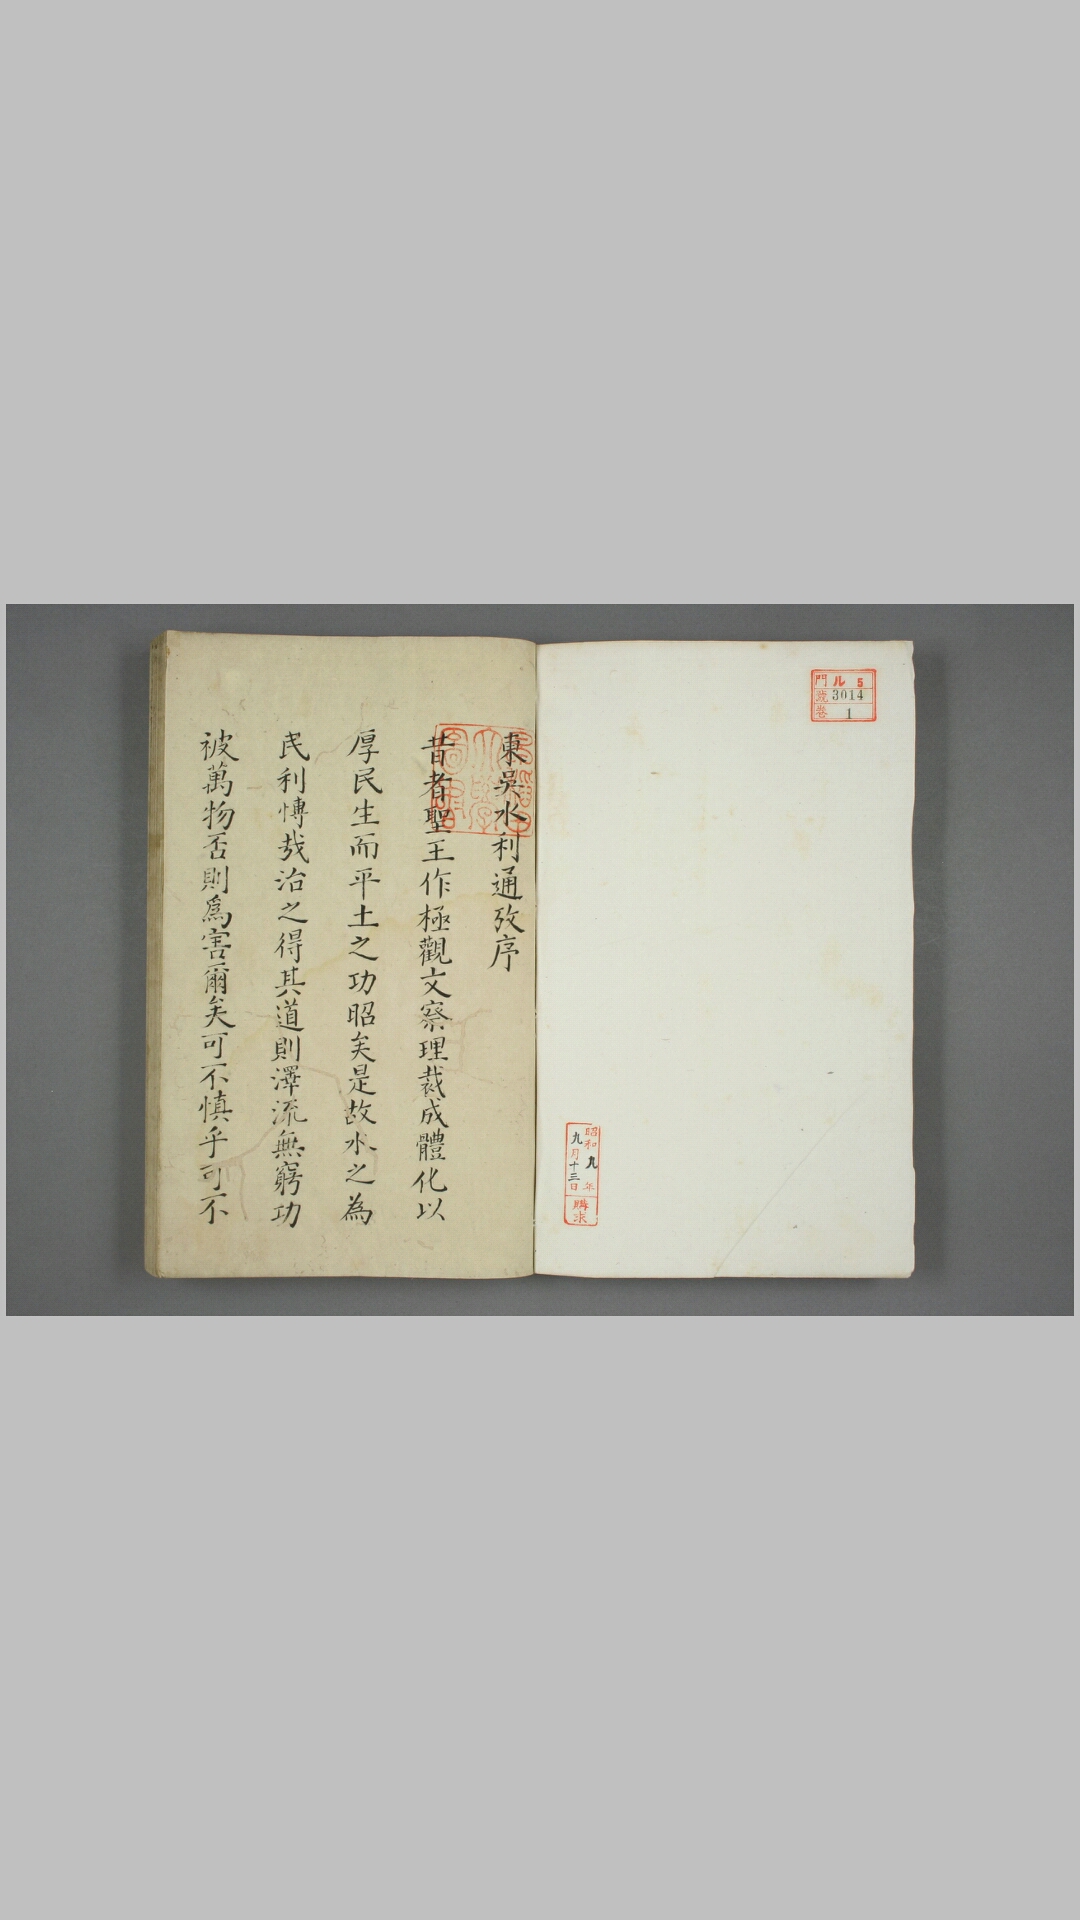 門 ル 5
號 3014
卷 1
昭和九年
九月十三日
購求
東吳水利通攷序
昔者聖王作極觀文察理裁成體化以
厚民生而平土之功昭矣是故水之為
民利慱哉治之得其道則澤流無窮功
被萬物否則爲害爾矣可不慎乎可不